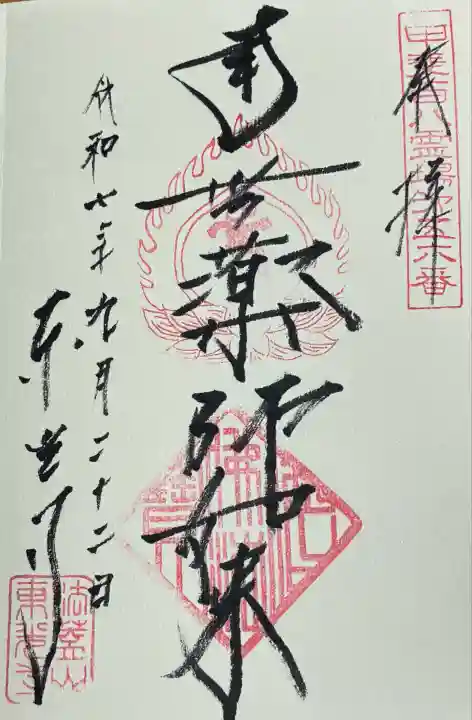 奉拝
甲斐百八霊場
南無薬師如来
令和七年九月二十二日
東光寺
法蓋山
東光寺